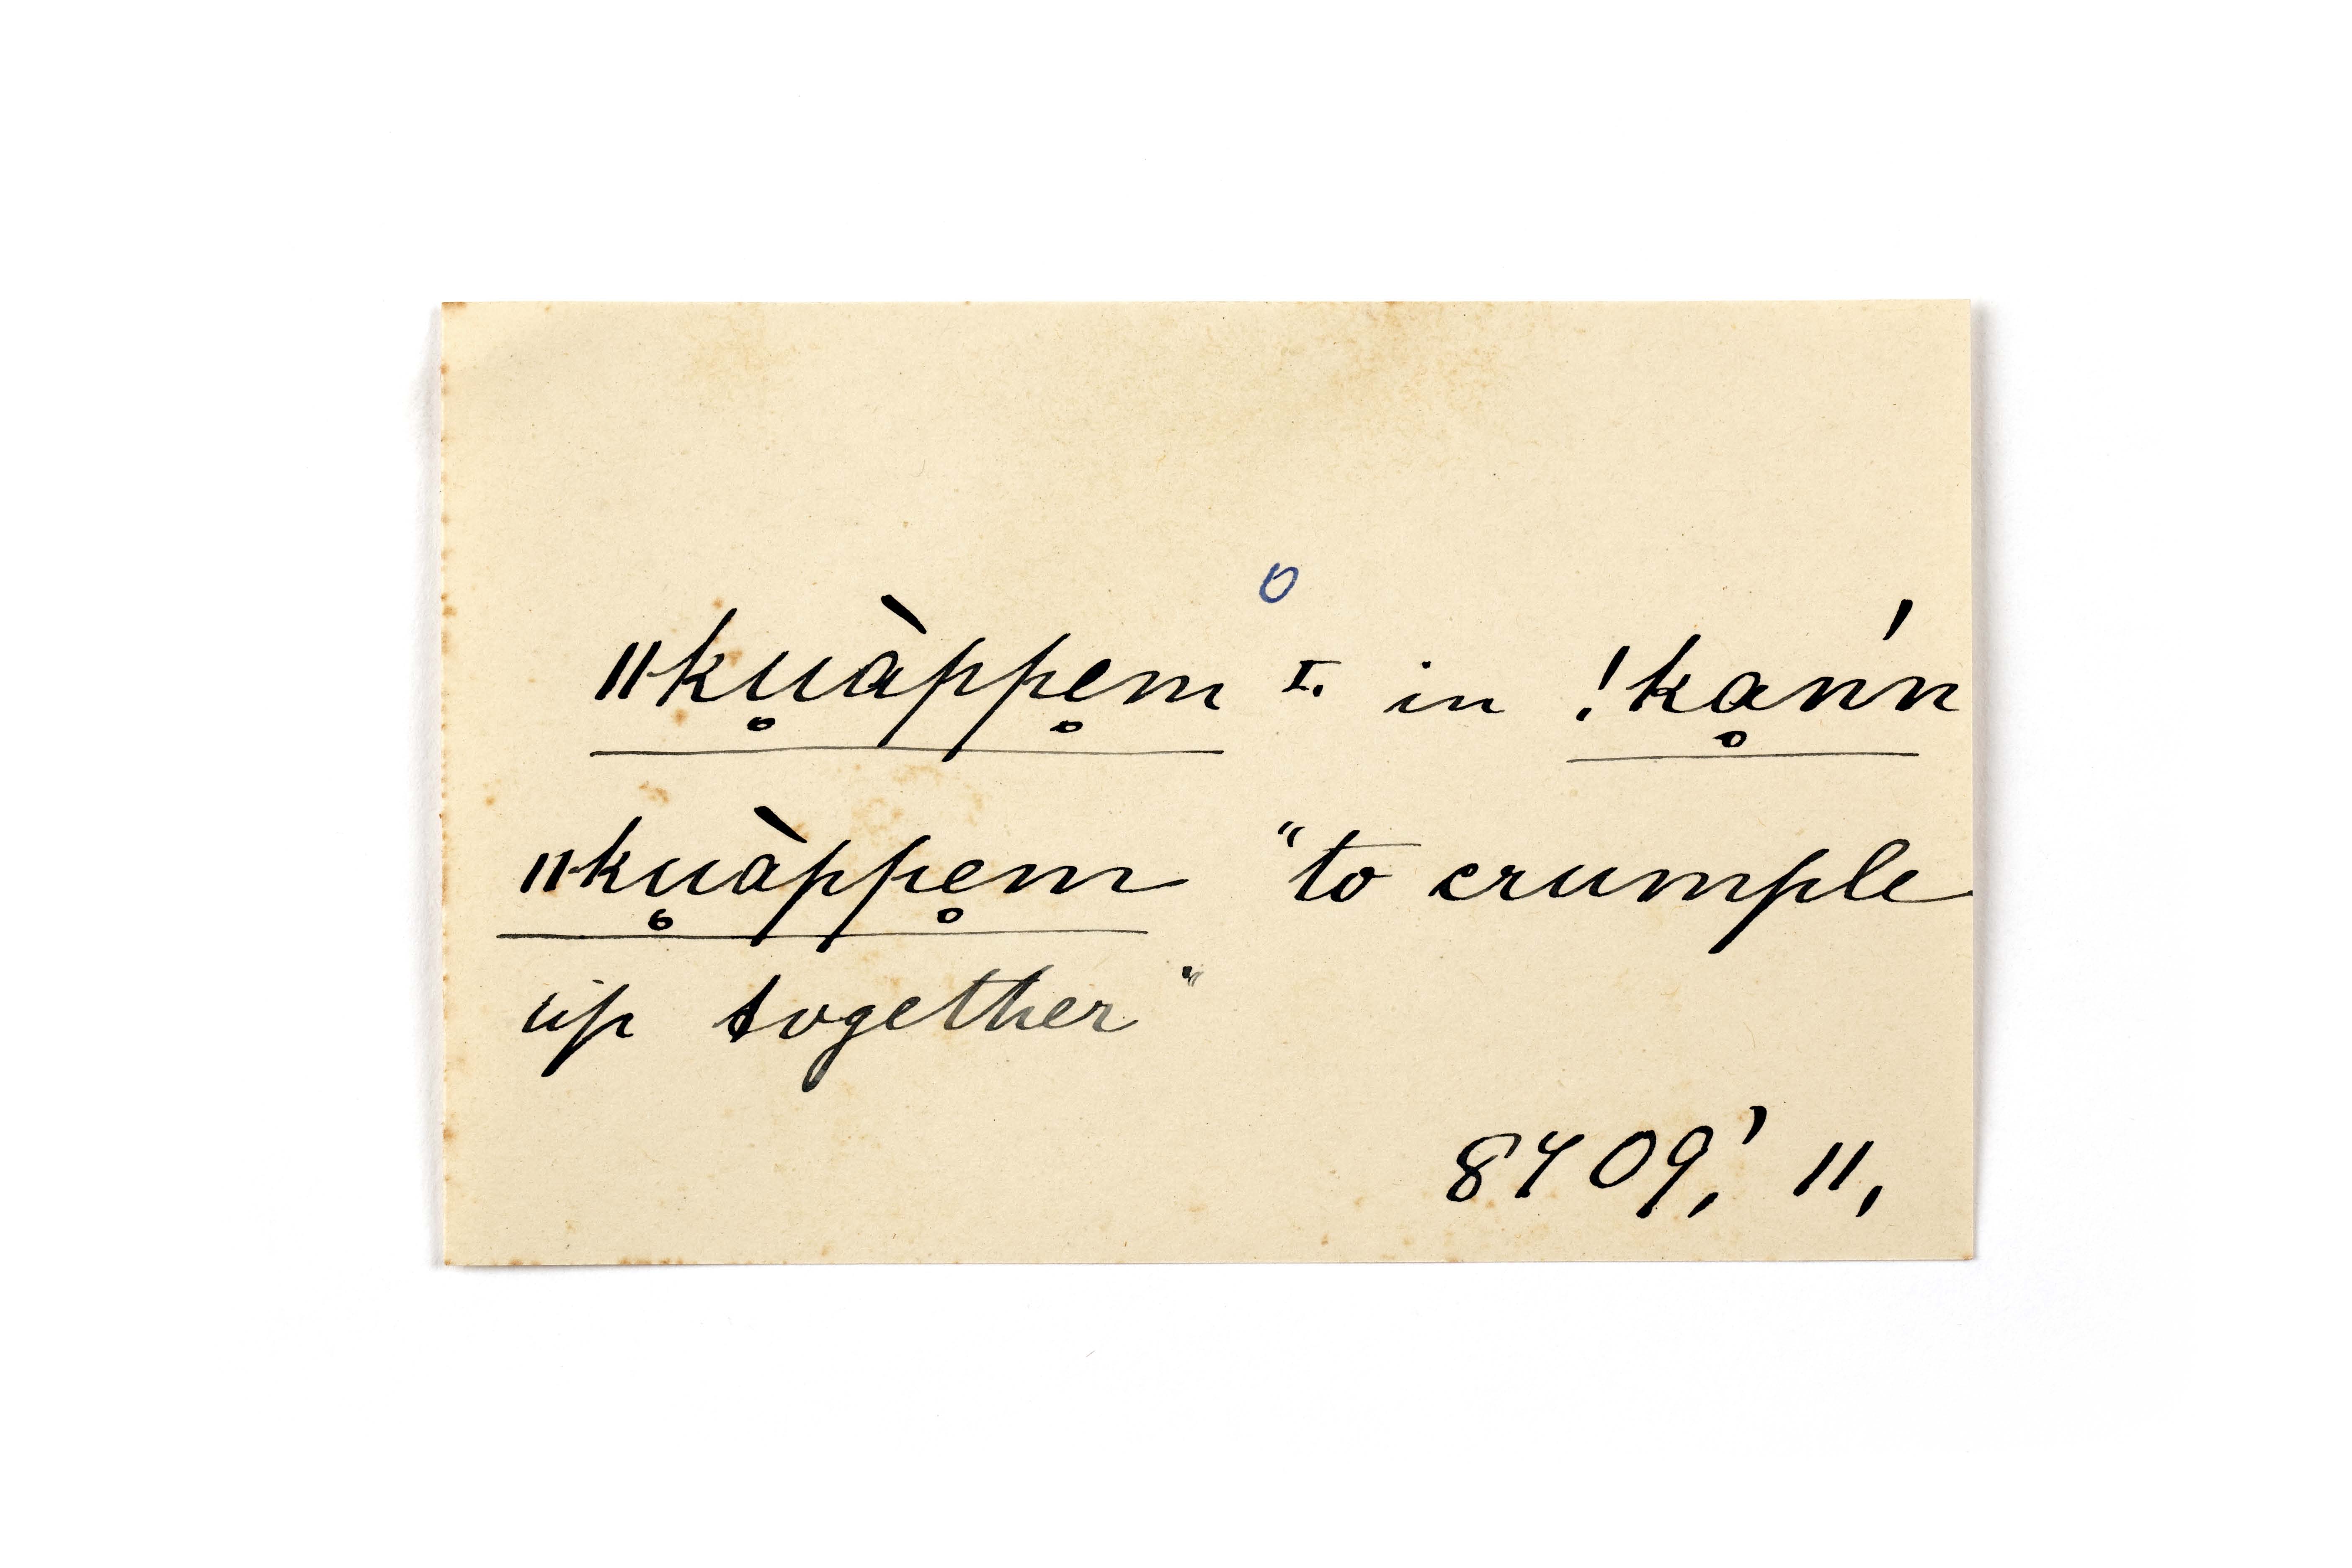 o
ǁku̥àppe̥m I. in !kḁnń
ǁku̥àppe̥m "to crumple
up together"
8409,' 11,